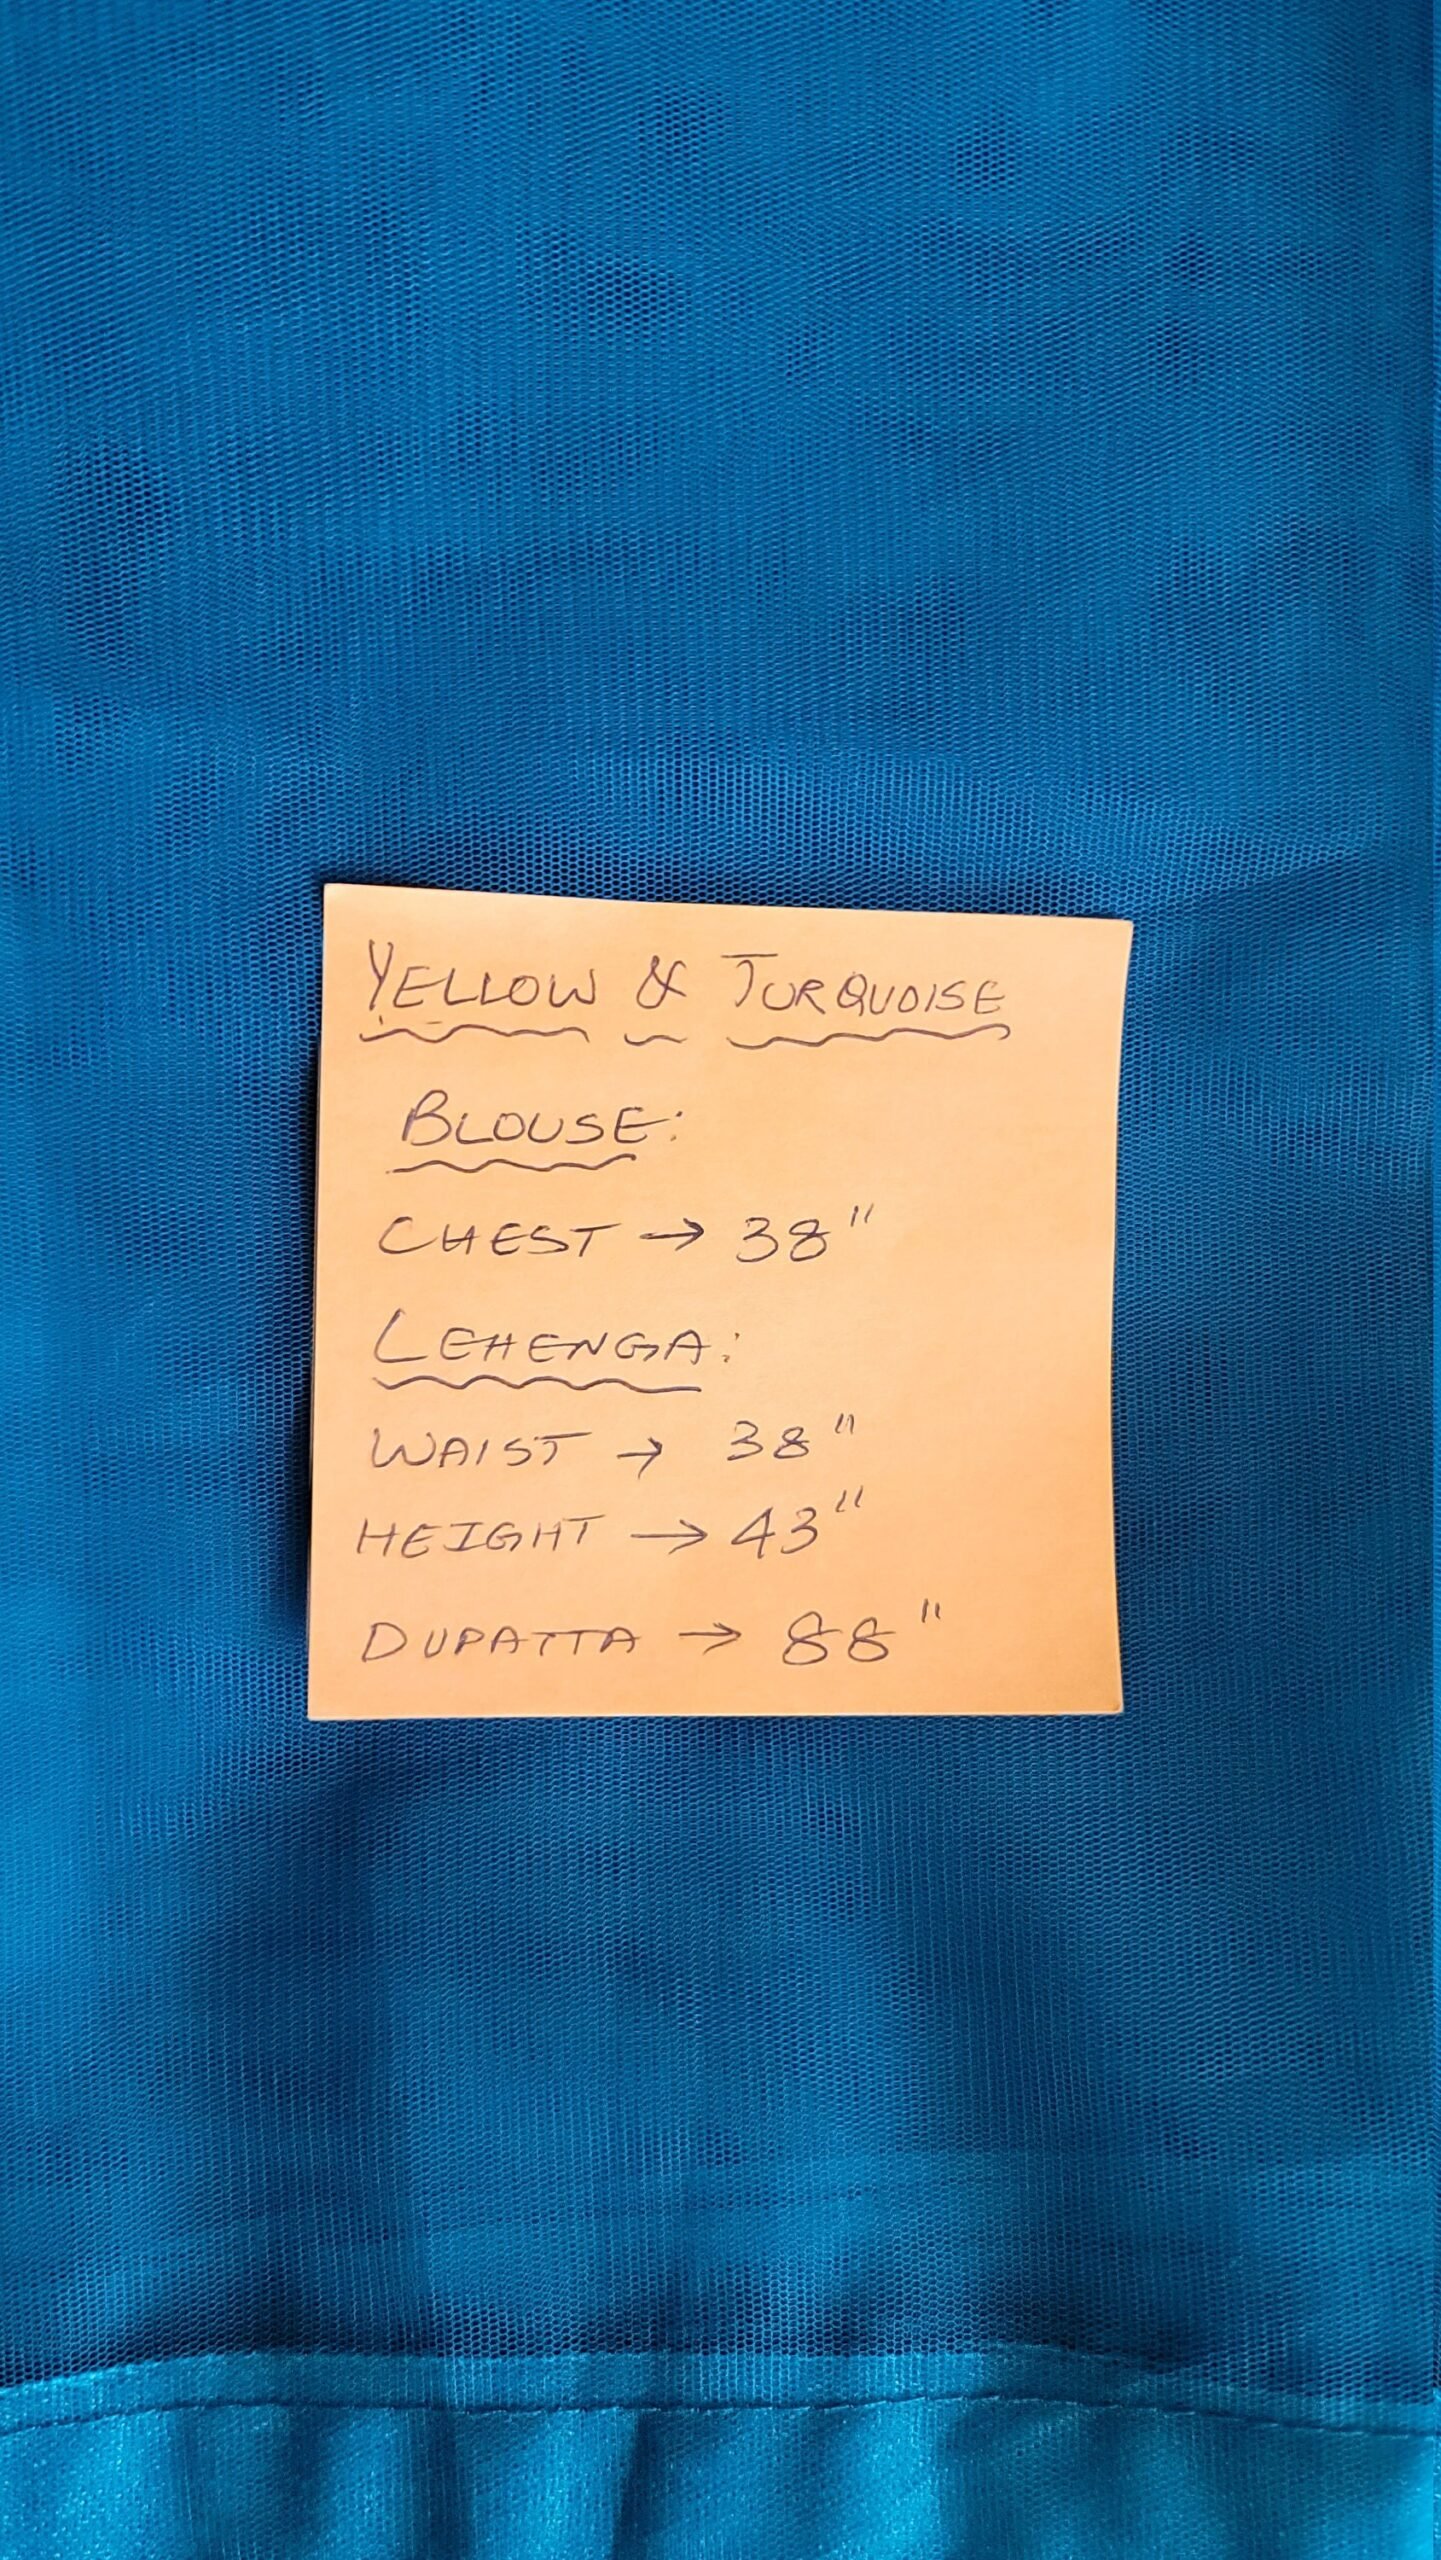 YELLOW & TURQUOISE
BLOUSE:
CHEST → 38"
LEHENGA:
WAIST → 38"
HEIGHT → 43"
DUPATTA → 88"